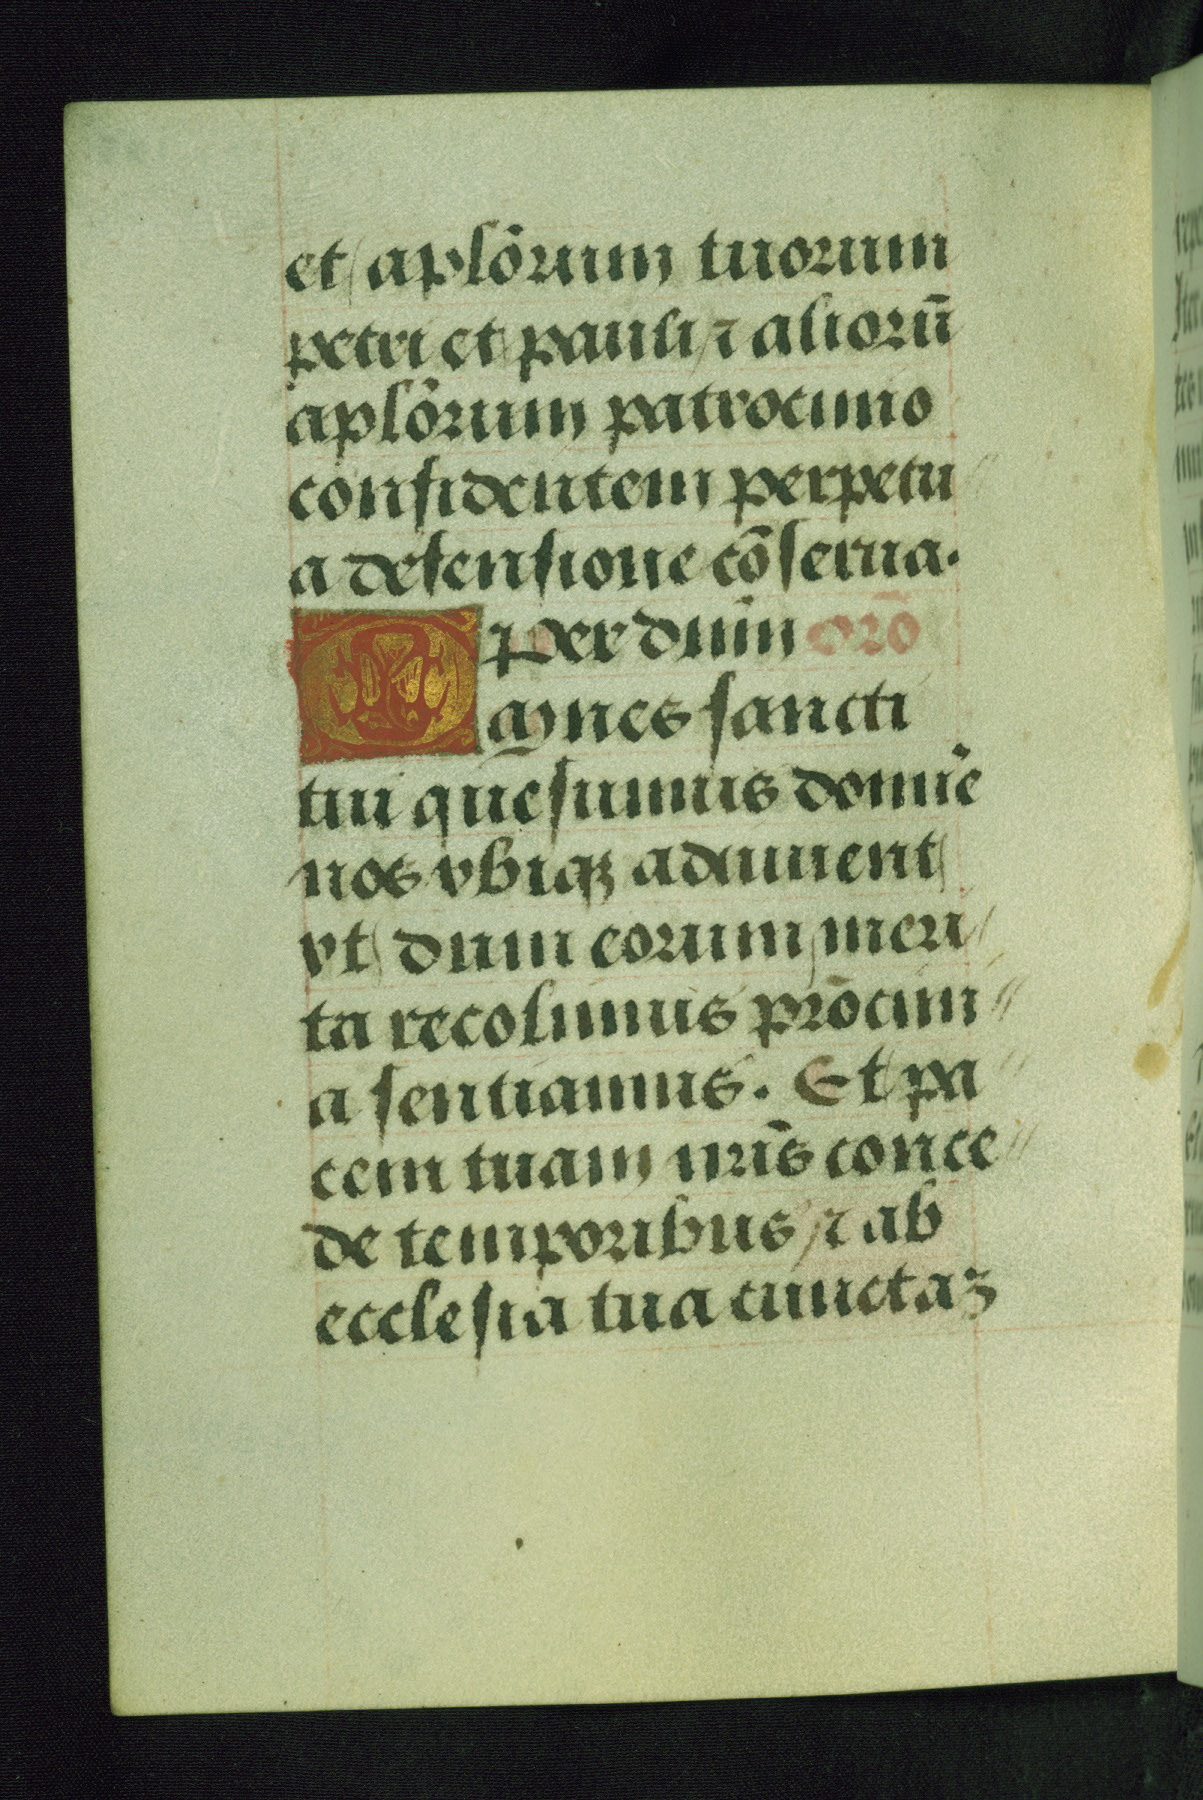 et aplōrum tuorum
petri et pauli ⁊ aliorū
aplōrum patrocinio
confidentem perpetu
a defensione cōserua.
per dnm̄ orō
Omnes sancti
tui quesumus domīe
nos vbiqꝫ adiuuent
vt dum eorum meri
ta recolimus prōcini
a sentiamus. Et pa
cem tuam nrīs conce
de temporibus ⁊ ab
ecclesia tua cunctaꝫ